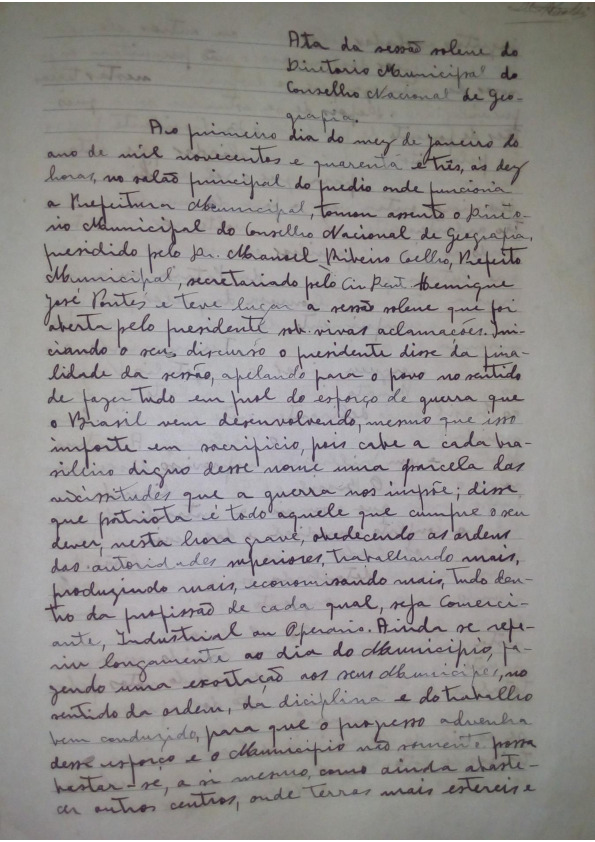 Ata da sessão solene do
Diretorio Municipal do
Conselho Nacional de Geo-
grafia.
Ao primeiro dia do mez de Janeiro do
ano de mil novecentos e quarenta e três, ás dez
horas, no salão principal do predio onde funciona
a Prefeitura Municipal, tomou assento o Direto-
rio Municipal do Conselho Nacional de Geografia,
presidido pelo Dr. Manoel Ribeiro Coelho, Prefeito
Municipal, secretariado pelo Henrique
José Pontes e teve lugar a sessão solene que foi
aberta pelo presidente sob vivas aclamações. Ini-
ciando o seu discurso o presidente disse da fina-
lidade da sessão, apelando para o povo no sentido
de fazer tudo em prol do esforço de guerra que
o Brasil vem desenvolvendo, mesmo que isso
importe em sacrificio, pois cabe a cada bra-
sileiro digno desse nome uma parcela das
vicissitudes que a guerra nos impõe; disse
que patriota é todo aquele que cumpre o seu
dever, nesta hora grave, obedecendo as ordens
das autoridades superiores, trabalhando mais,
produzindo mais, economisando mais, tudo den-
tro da profissão de cada qual, seja Comerci-
ante, Industrial ou Operario. Ainda se refe-
riu longamente ao dia do Municipio, fa-
zendo uma exortação aos seus Municipes, no
sentido da ordem, da diciplina e do trabalho
bem conduzido, para que o progresso advenha
desse esforço e o Municipio não somente possa
bastar-se, a si mesmo, como ainda abaste-
cer outros centros, onde terras mais estereis e